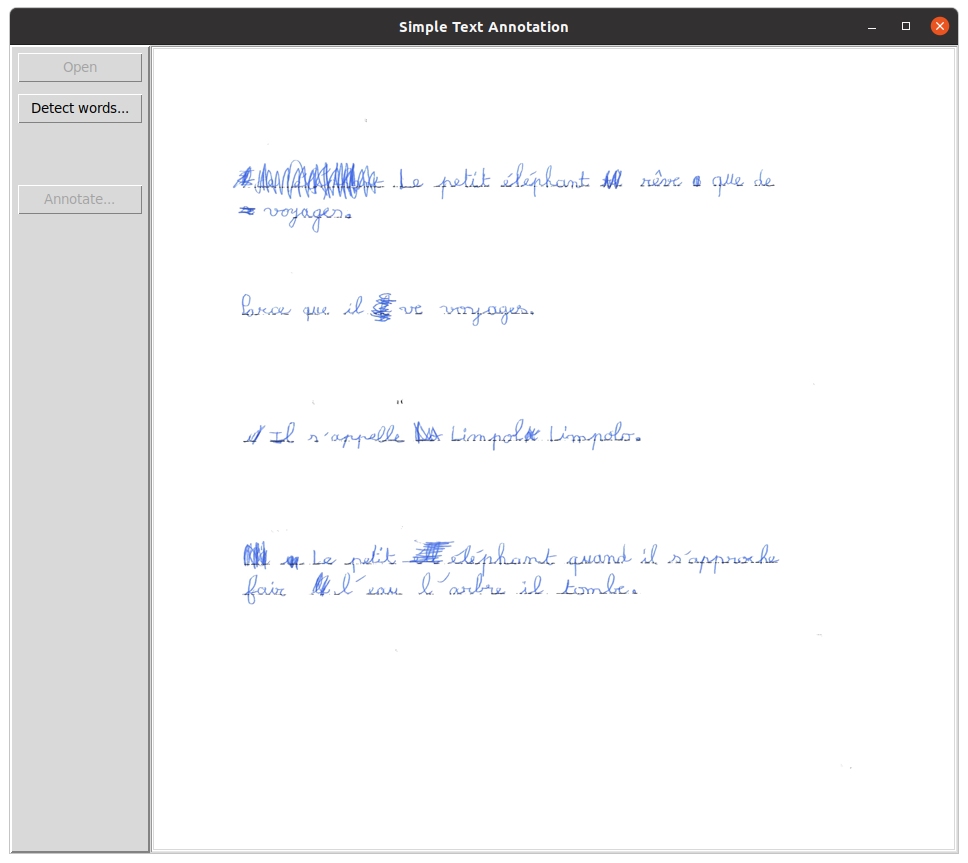 Simple Text Annotation
Open
Detect words...
Annotate...
Le petit éléphant rêve que de
voyages.
Parce que il ve voyages.
Il s'appelle Limpolo.
Le petit éléphant quand il s'approche
fair l'eau l'arbre il tombe.